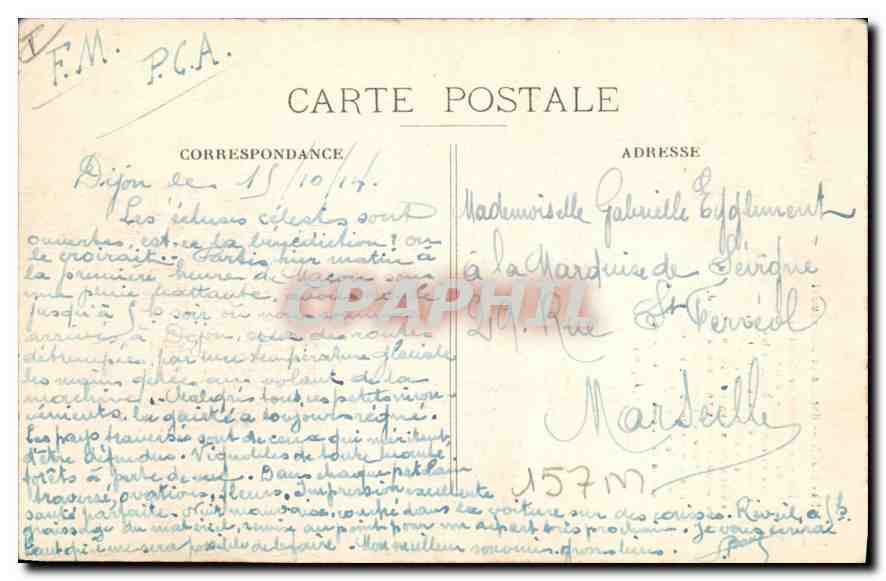 F.M. P.C.A.
CARTE POSTALE
CORRESPONDANCE
ADRESSE
Dijon le 15/10/14.
Les écluses célestes sont
ouvertes, est-ce la bénédiction? on
le croirait. Partis hier matin à
la première heure de Macon sous
une pluie battante,
jusqu'à 5h soir où nous sommes
arrivés à Dijon, des routes
détrempées, par une température glaciale
les mains gelées au volant de la
machine. Malgré tous ces petits incon-
vénients, la gaieté a toujours régné.
Les pays traversés sont de ceux qui méritent
d'être défendus. Vignobles de toute beauté
forêts à perte de vue. Dans chaque patelin
traversé, ovations, fleurs. Impression excellente
santé parfaite. Nuit mauvaise, couché dans la voiture sur des caisses. Réveil à 5h.
graissage du matériel, remise au point pour un départ très prochain. Je vous écrirai
tant qu'il me sera possible de le faire. Mon meilleur souvenir.
Mademoiselle Gabrielle Eyglument
à la Marquise de Sévigné
Rue St Ferréol
Marseille
157 m
CPAPHIL